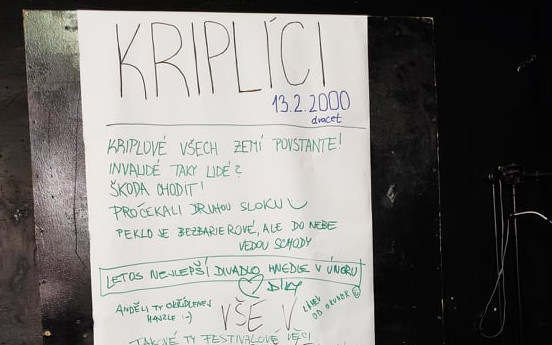 KRIPLÍCI
13.2.2000
dvacet
KRIPLOVÉ VŠECH ZEMÍ POVSTANTE!
INVALIDÉ TAKY LIDÉ?
ŠKODA CHODIT!
PROČEKALI DRUHOU SLOKU
PEKLO JE BEZBARIEROVÉ, ALE DO NEBE
VEDOU SCHODY
LETOS NEJLEPŠÍ DIVADLO HNEDLE V ÚNORU
DÍKY
ANDĚLI TY OKŘÍDLENEJ
HANZLE :-)
VŠE V
OD
TAKOVÉ TY FESTIVALOVÉ VĚCI